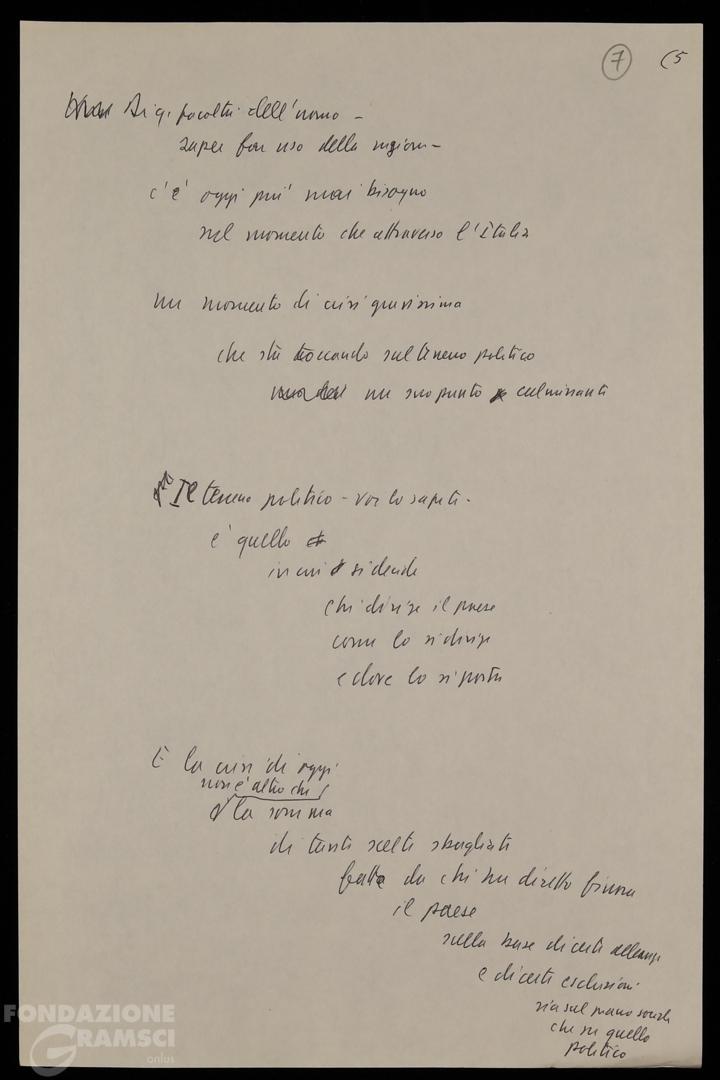 7 (5
Di qs. facoltà dell'uomo –
saper far uso della ragione –
c'è oggi più mai bisogno
nel momento che attraversa l'Italia
un momento di crisi gravissima
che sta toccando sul terreno politico
un suo punto culminante
Il terreno politico – voi lo sapete –
è quello
in cui si decide
chi dirige il paese
come lo si dirige
e dove lo si porta
E la crisi di oggi
non è altro che
la somma
di tante scelte sbagliate
fatte da chi ha diretto finora
il paese
sulla base di certe alleanze
e di certe esclusioni
sia sul piano sociale
che su quello
politico
FONDAZIONE
GRAMSCI
onlus